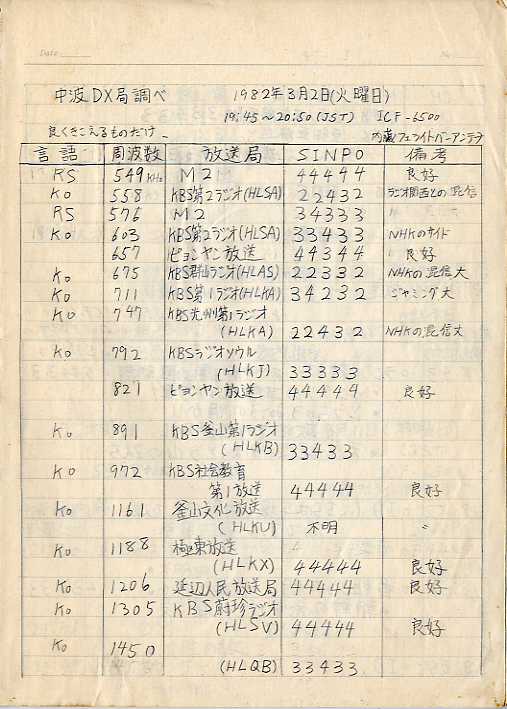 Date
No
中波DX局調べ 1982年3月2日(火曜日)
19:45~20:50(JST) ICF-6500
良くきこえるものだけ 内蔵フェライトバーアンテナ
言語 周波数 放送局 SINPO 備考
RS 549KHz M2 44444 良好
Ko 558 KBS第2ラジオ(HLSA) 22432 ラジオ関西との混信
RS 576 M2 34333
Ko 603 KBS第2ラジオ(HLSA) 33433 NHKのサイド
657 ピョンヤン放送 44344 良好
Ko 675 KBS群山ラジオ(HLAS) 22332 NHKの混信大
Ko 711 KBS第1ラジオ(HLKA) 34232 ジャミング大
Ko 747 KBS光州第1ラジオ
(HLKA) 22432 NHKの混信大
Ko 792 KBSラジオソウル
(HLKJ) 33333
821 ピョンヤン放送 44444 良好
Ko 891 KBS釜山第1ラジオ
(HLKB) 33433
Ko 972 KBS社会教育
第1放送 44444 良好
Ko 1161 釜山文化放送
(HLKU) 不明 〃
Ko 1188 極東放送
(HLKX) 44444 良好
Ko 1206 延辺人民放送局 44444 良好
Ko 1305 KBS蔚珍ラジオ
(HLSV) 44444 良好
Ko 1450
(HLQB) 33433